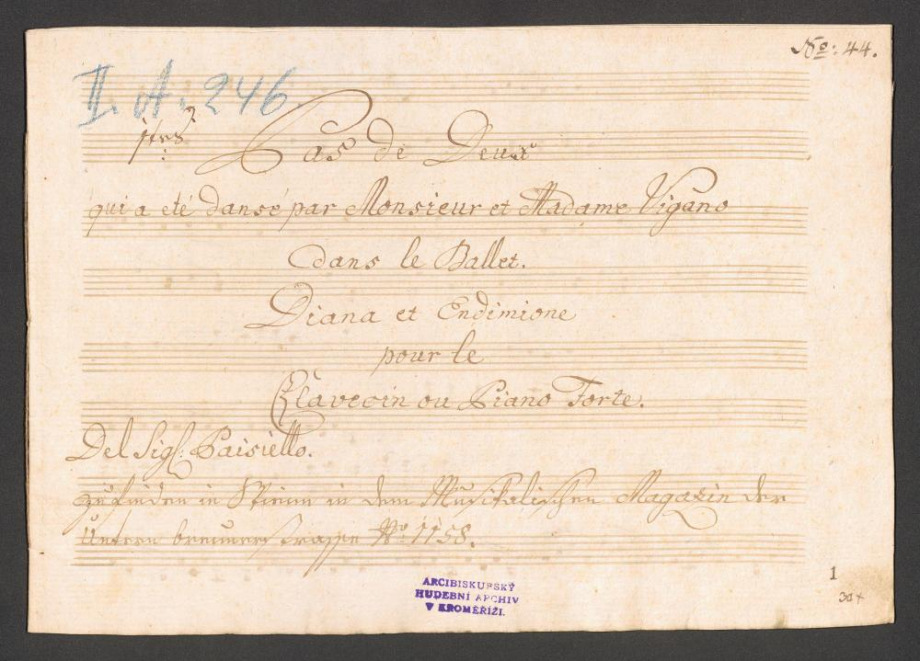 No: 44.
II. A. 246
Pas de Deux
qui a eté dansé par Monsieur et Madame Vigano
dans le Ballet.
Diana et Endimione
pour le
Clavecin ou Piano Forte.
Del Sigl: Paisiello.
zu finden in Wienn in dem Musikalischen Magazin der
Untern breunerstrasse No: 1158.
ARCIBISKUPSKÝ
HUDEBNÍ ARCHIV
V KROMĚŘÍŽI.
1